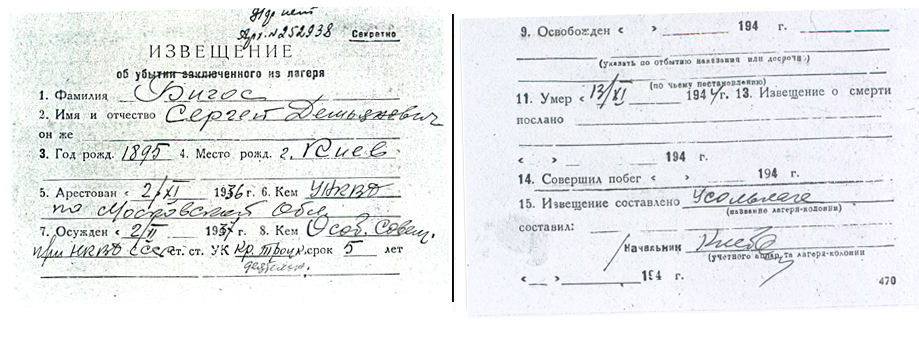 Арх. №252938
Секретно
ИЗВЕЩЕНИЕ
об убытии заключенного из лагеря
1. Фамилия Бигос
2. Имя и отчество Сергей Демьянович
он же
3. Год рожд. 1895 4. Место рожд. г. Киев
5. Арестован « 2/XI 1936 г. 6. Кем УНКВД
по Московской Обл.
7. Осужден « 2/II 1937 г. 8. Кем Особ. Совещ.
при НКВД СССР ст. ст. УК Кр. троцк. срок 5 лет
деятельн.
9. Освобожден « » 194 г.
(указать по отбытию наказания или досрочн.)
(по чьему постановлению)
11. Умер « 13/XI 1941 г. 13. Извещение о смерти
послано
« » 194 г.
14. Совершил побег « » 194 г.
15. Извещение составлено Усольлаге
(название лагеря-колонии)
составил:
Начальник
(учетного аппарата лагеря-колонии
« » 194 г.
470